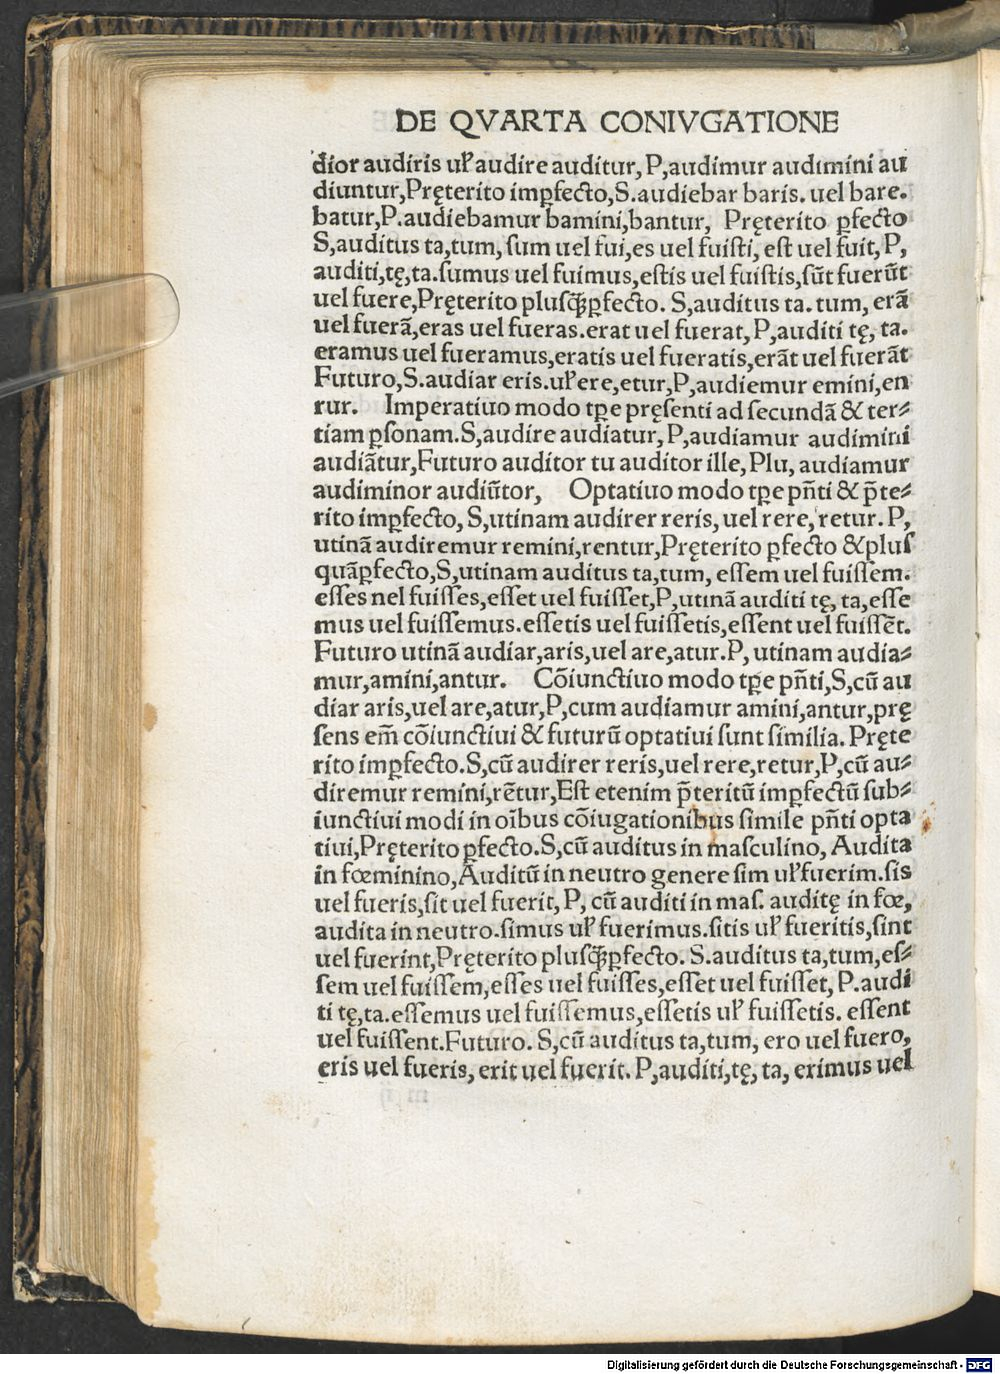 DE QVARTA CONIVGATIONE
dior audiris uꝉ audire auditur, P,audimur audimini au
diuntur,Pręterito imꝑfecto,S.audiebar baris. uel bare.
batur,P.audiebamur bamini,bantur, Pręterito ꝑfecto
S,auditus ta,tum, ſum uel fui,es uel fuiſti, eſt uel fuit, P,
auditi,tę,ta.ſumus uel fuimus,eſtis uel fuiſtis,ſūt fuerūt
uel fuere,Pręterito pluſq̃ꝑfecto. S,auditus ta. tum, erā
uel fuerā,eras uel fueras.erat uel fuerat, P,auditi tę, ta.
eramus uel fueramus,eratis uel fueratis,erāt uel fuerāt
Futuro,S.audiar eris.uꝉ ere,etur,P,audiemur emini,en
rur. Imperatiuo modo tꝑe pręſenti ad ſecundā & ter⸗
tiam ꝑſonam.S,audire audiatur, P,audiamur audimini
audiātur,Futuro auditor tu auditor ille, Plu, audiamur
audiminor audiūtor, Optatiuo modo tꝑe pn̄ti & p̄te⸗
rito imꝑfecto, S,utinam audirer reris, uel rere, retur. P,
utinā audiremur remini,rentur,Pręterito ꝑfecto &pluſ
quāꝑfecto,S,utinam auditus ta,tum, eſſem uel fuiſſem.
eſſes nel fuiſſes,eſſet uel fuiſſet,P,utinā auditi tę, ta,eſſe
mus uel fuiſſemus.eſſetis uel fuiſſetis,eſſent uel fuiſſēt.
Futuro utinā audiar,aris,uel are,atur.P, utinam audia⸗
mur,amini,antur. Cōiunctiuo modo tꝑe pn̄ti,S,cū au
diar aris,uel are,atur,P,cum audiamur amini,antur,prę
ſens em̄ cōiunctiui & futurū optatiui ſunt ſimilia. Pręte
rito imꝑfecto.S,cū audirer reris,uel rere,retur,P,cū au⸗
diremur remini,rētur,Eſt etenim p̄teritū imꝑfectū ſub⸗
iunctiui modi in oībus cōiugationibus ſimile pn̄ti opta
tiui,Pręterito ꝑfecto.S,cū auditus in maſculino, Audita
in fœminino,Auditū in neutro genere ſim uꝉ fuerim.ſis
uel fueris,ſit uel fuerit, P, cū auditi in maſ. auditę in fœ,
audita in neutro.ſimus uꝉ fuerimus.ſitis uꝉ fueritis,ſint
uel fuerint,Pręterito pluſq̃ꝑfecto. S.auditus ta,tum,eſ⸗
ſem uel fuiſſem,eſſes uel fuiſſes,eſſet uel fuiſſet, P.audi
ti tę,ta.eſſemus uel fuiſſemus,eſſetis uꝉ fuiſſetis. eſſent
uel fuiſſent.Futuro. S,cū auditus ta,tum, ero uel fuero,
eris uel fueris, erit uel fuerit. P,auditi,tę, ta, erimus uel
Digitalisierung gefördert durch die Deutsche Forschungsgemeinschaft - DFG